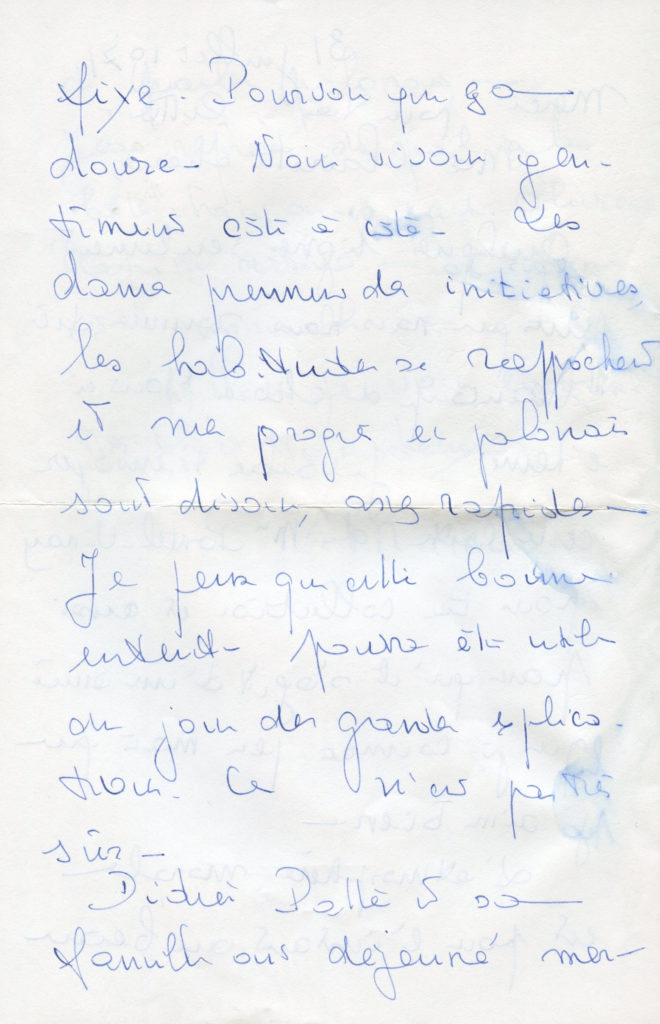 fixe. Pourvu que ça
dure - Nous vivons gen-
timent côte à côte - Les
dames prennent des initiatives,
les habitudes se rapprochent
et mes progrès en polonais
sont disons, assez rapides -
Je pense que cette bonne
entente pourra être utile
au jour des grandes explica-
tions. Ce n'est pas très
sûr -
Didier et sa
famille ont déjeuné mer-